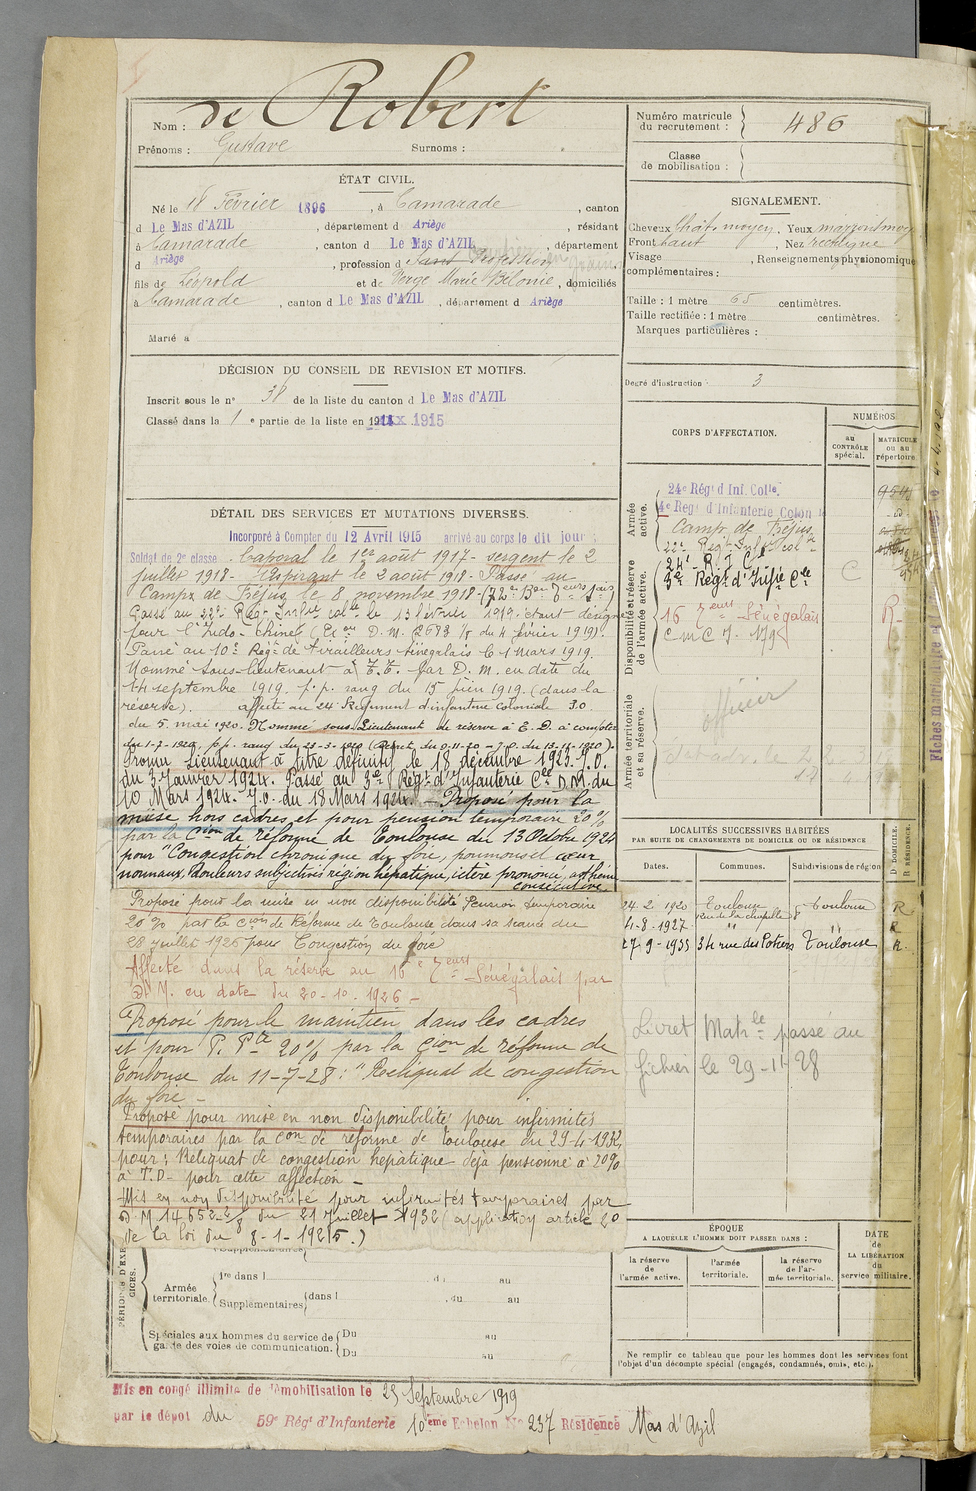 Nom : de Robert
Prénoms : Gustave Surnoms :
Numéro matricule du recrutement : 486
Classe de mobilisation :
ÉTAT CIVIL.
Né le 18 Février 1896, à Camarade, canton
d Le Mas d'AZIL, département d Ariège, résidant
à Camarade, canton d Le Mas d'AZIL, département
d Ariège, profession d Sans Profession
fils de Léopold et de Verge Marie Mélonie, domiciliés
à Camarade, canton d Le Mas d'AZIL, département d Ariège
Marié à
SIGNALEMENT.
Cheveux chât. moyen. Yeux marron moy
Front haut, Nez rectiligne
Visage, Renseignements physionomiques
complémentaires :
Taille : 1 mètre 65 centimètres.
Taille rectifiée : 1 mètre centimètres.
Marques particulières :
Degré d'instruction : 3
DÉCISION DU CONSEIL DE REVISION ET MOTIFS.
Inscrit sous le n° 38 de la liste du canton d Le Mas d'AZIL
Classé dans la 1e partie de la liste en 1915
DÉTAIL DES SERVICES ET MUTATIONS DIVERSES.
Incorporé à Compter du 12 Avril 1915 arrivé au corps le dit jour
Soldat de 2e classe. Caporal le 1er août 1917 - sergent le 2
juillet 1918 - Aspirant le 2 août 1918 - Passé au
Camp de Fréjus le 8 novembre 1918 -
Passé au 22e Régt Infrie colle le 13 février 1919, étant désigné
pour l'Indo-Chine ( D.M. 2693 1/8 du 4 février 1919).
Passé au 10e Régt de Tirailleurs Sénégalais le 1 mars 1919.
Nommé sous-lieutenant à T.T. par D. M. en date du
14 septembre 1919. p. p. rang du 15 juin 1919. (dans la
réserve). affecté au 24 Régiment d'infanterie coloniale J.O.
du 5 mai 1920. Nommé sous-Lieutenant de réserve à E. D. à compter
du 1-7-1920, p.p. rang du 23-3-1920 (Décret du 9-11-20 - J.O. du 13-11-1920).
Promu Lieutenant à titre définitif le 18 décembre 1923. J.O.
du 3 Janvier 1924. Passé au 3e Régt d'Infanterie Cle D.M. du
10 Mars 1924. J.O. du 18 Mars 1924. - Proposé pour la
mise hors cadres et pour pension temporaire 20%
par la Cion de réforme de Toulouse du 13 Octobre 1924
pour "Congestion chronique du foie, poumons et cœur
normaux, douleurs subjectives région hépatique, ictère prononcé, asthénie
consécutive
Proposé pour la mise en non disponibilité Pension temporaire
20% par la Cion de Réforme de Toulouse dans sa séance du
28 juillet 1926 pour Congestion du foie
Affecté dans la réserve au 16e Teurs Sénégalais par
D.M. en date du 20-10-1926 -
Proposé pour le maintien dans les cadres
et pour P. Pte 20% par la Cion de réforme de
Toulouse du 11-7-28 : "Reliquat de congestion
du foie -
Proposé pour mise en non disponibilité pour infirmités
temporaires par la Con de réforme de Toulouse du 29-4-1932
pour : Reliquat de congestion hépatique déjà pensionné à 20%
à T.D. pour cette affection -
Mis en non disponibilité pour infirmités temporaires par
D.M 14652-2/8 du 21 Juillet 1932 (application article 20
de la loi du 8-1-1925.)
CORPS D'AFFECTATION.
NUMÉROS
au CONTRÔLE spécial.
MATRICULE ou au répertoire.
Armée active.
24e Régt d'Inf. Colle.
4e Régt d'Infanterie Colon le
Camp de Fréjus
22e Régt Infie Colle
Disponibilité et réserve de l'armée active.
24e R.I.Cle C
3e Régt d'Infie Cle
16 Teurs Sénégalais R
CMC 7. 179
Armée territoriale et sa réserve.
officier
LOCALITÉS SUCCESSIVES HABITÉES
PAR SUITE DE CHANGEMENTS DE DOMICILE OU DE RÉSIDENCE
Dates. Communes. Subdivisions de région D DOMICILE. R RÉSIDENCE.
24-2 1920 Toulouse Toulouse R
4-8-1927 Rue de la chapelle 8 " R
27-9-1933 34 rue des Potiers Toulouse R.
Livret Matle passé au
fichier le 29-11-28
PÉRIODES D'EXERCICES.
Supplémentaires
Armée territoriale.
1re dans l du au
Supplémentaires (dans l du au
Spéciales aux hommes du service de garde des voies de communication.
Du au
Du au
ÉPOQUE
A LAQUELLE L'HOMME DOIT PASSER DANS :
la réserve de l'armée active.
l'armée territoriale.
la réserve de l'armée territoriale.
DATE de LA LIBÉRATION du service militaire.
Ne remplir ce tableau que pour les hommes dont les services font
l'objet d'un décompte spécial (engagés, condamnés, omis, etc.).
Mis en congé illimité de démobilisation le 25 Septembre 1919
par le dépôt du 59e Régt d'Infanterie 10ème Echelon N° 237 Résidence Mas d'Azil